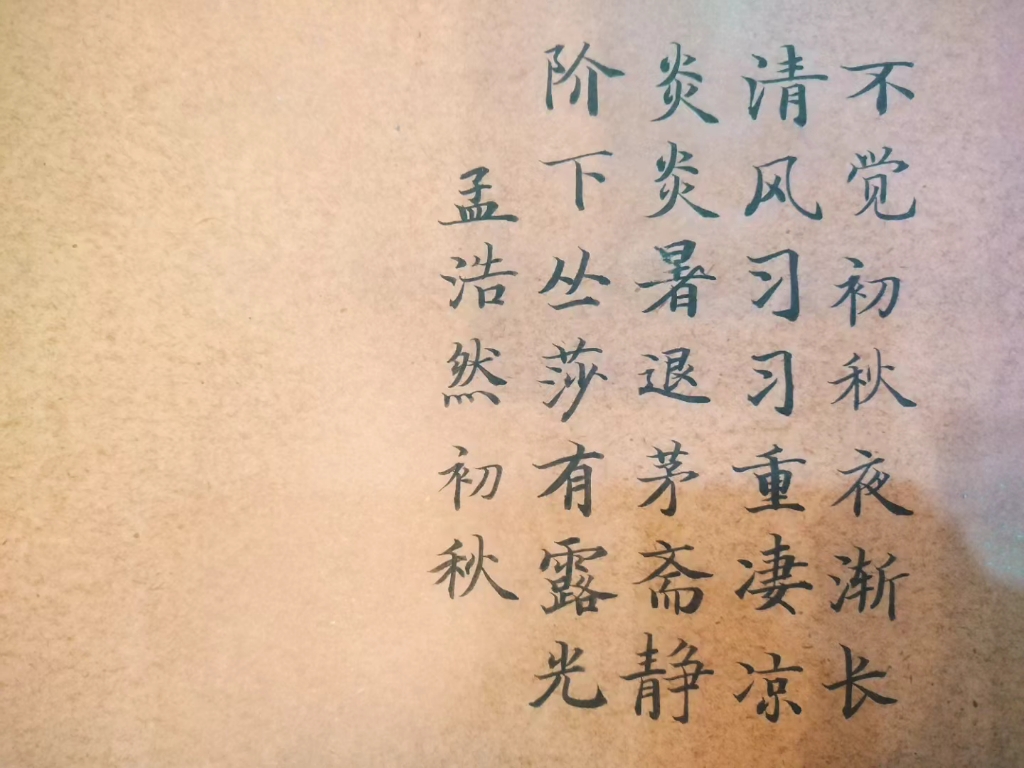 不觉初秋夜渐长
清风习习重凄凉
炎炎暑退茅斋静
阶下丛莎有露光
孟浩然初秋